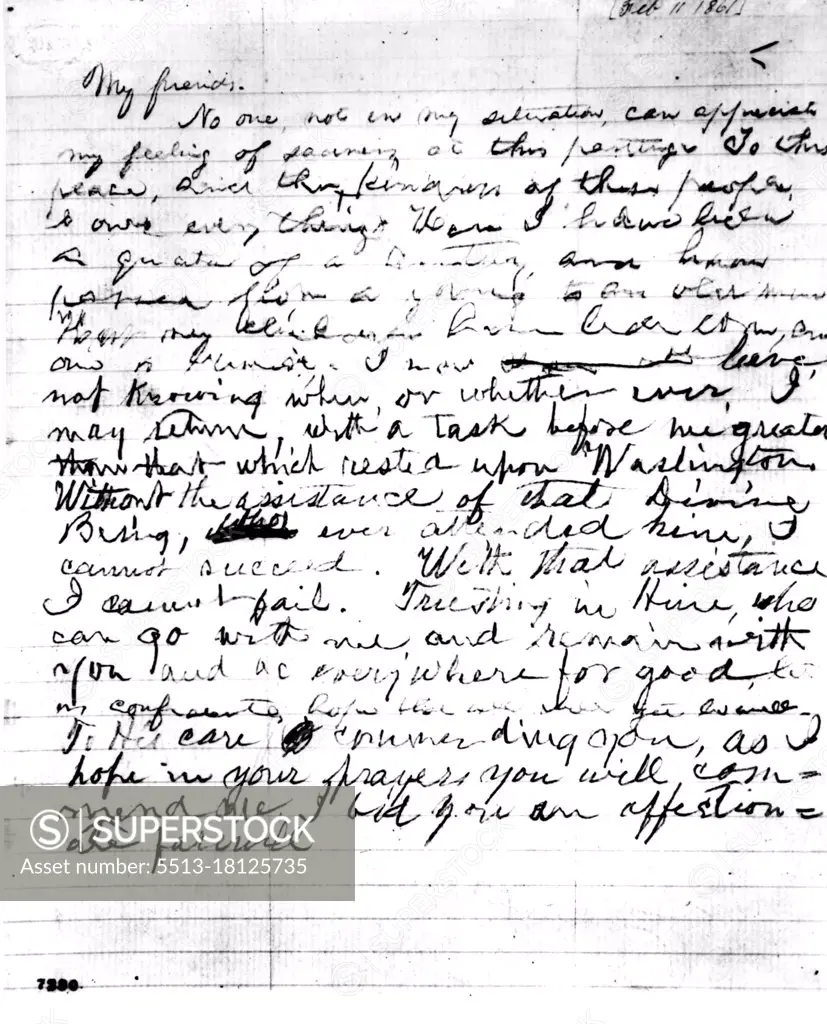 [Feb 11 1861]
My friends.
No one, not in my situation, can appreciate
my feeling of sadness at this parting. To this
place, and the kindness of these people,
I owe every thing. Here I have been
a quarter of a century, and have
passed from a young to an old man
Here my children have been born, and
one is buried. I now leave,
not knowing when, or whether ever, I
may return, with a task before me greater
than that which rested upon Washington.
Without the assistance of that Divine
Being, who ever attended him, I
cannot succeed. With that assistance
I cannot fail. Trusting in Him, who
can go with me, and remain with
you and be everywhere for good, let
us confidently hope that all will yet be well.
To His care commending you, as I
hope in your prayers you will com=
mend me, I bid you an affection=
ate farewell
SUPERSTOCK
Asset number: 5513-18125735
7380